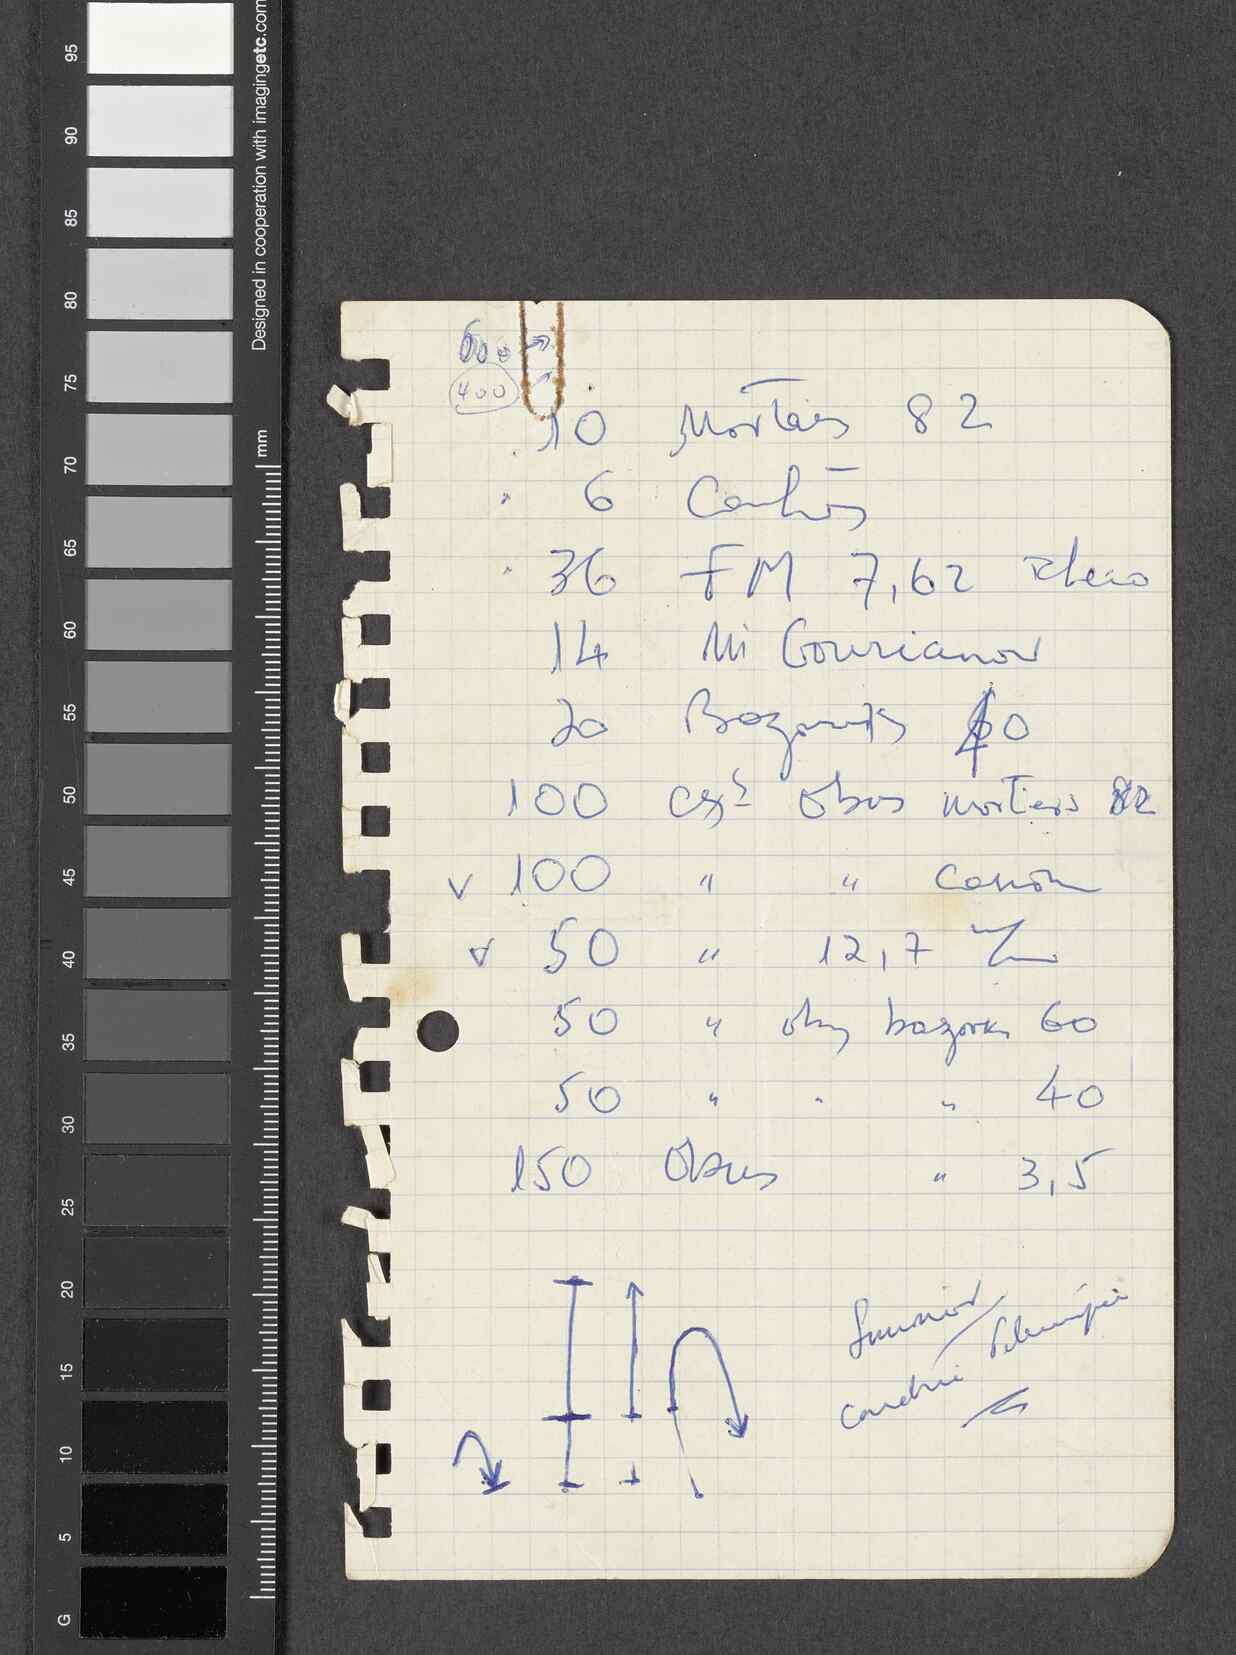 400
10 Mortiers 82
6 Canhões
36 FM 7,62
14 Mi Gourianov
20 Bazookas 60
100 css obus mortiers 82
v 100 " " canon
v 50 " 12,7
50 " obus bazooka 60
50 " " " 40
150 Obus " 3,5
95
90
85
80
75
70
65
60
55
50
45
40
35
30
25
20
15
10
5
G
Designed in cooperation with imagingetc.com
mm